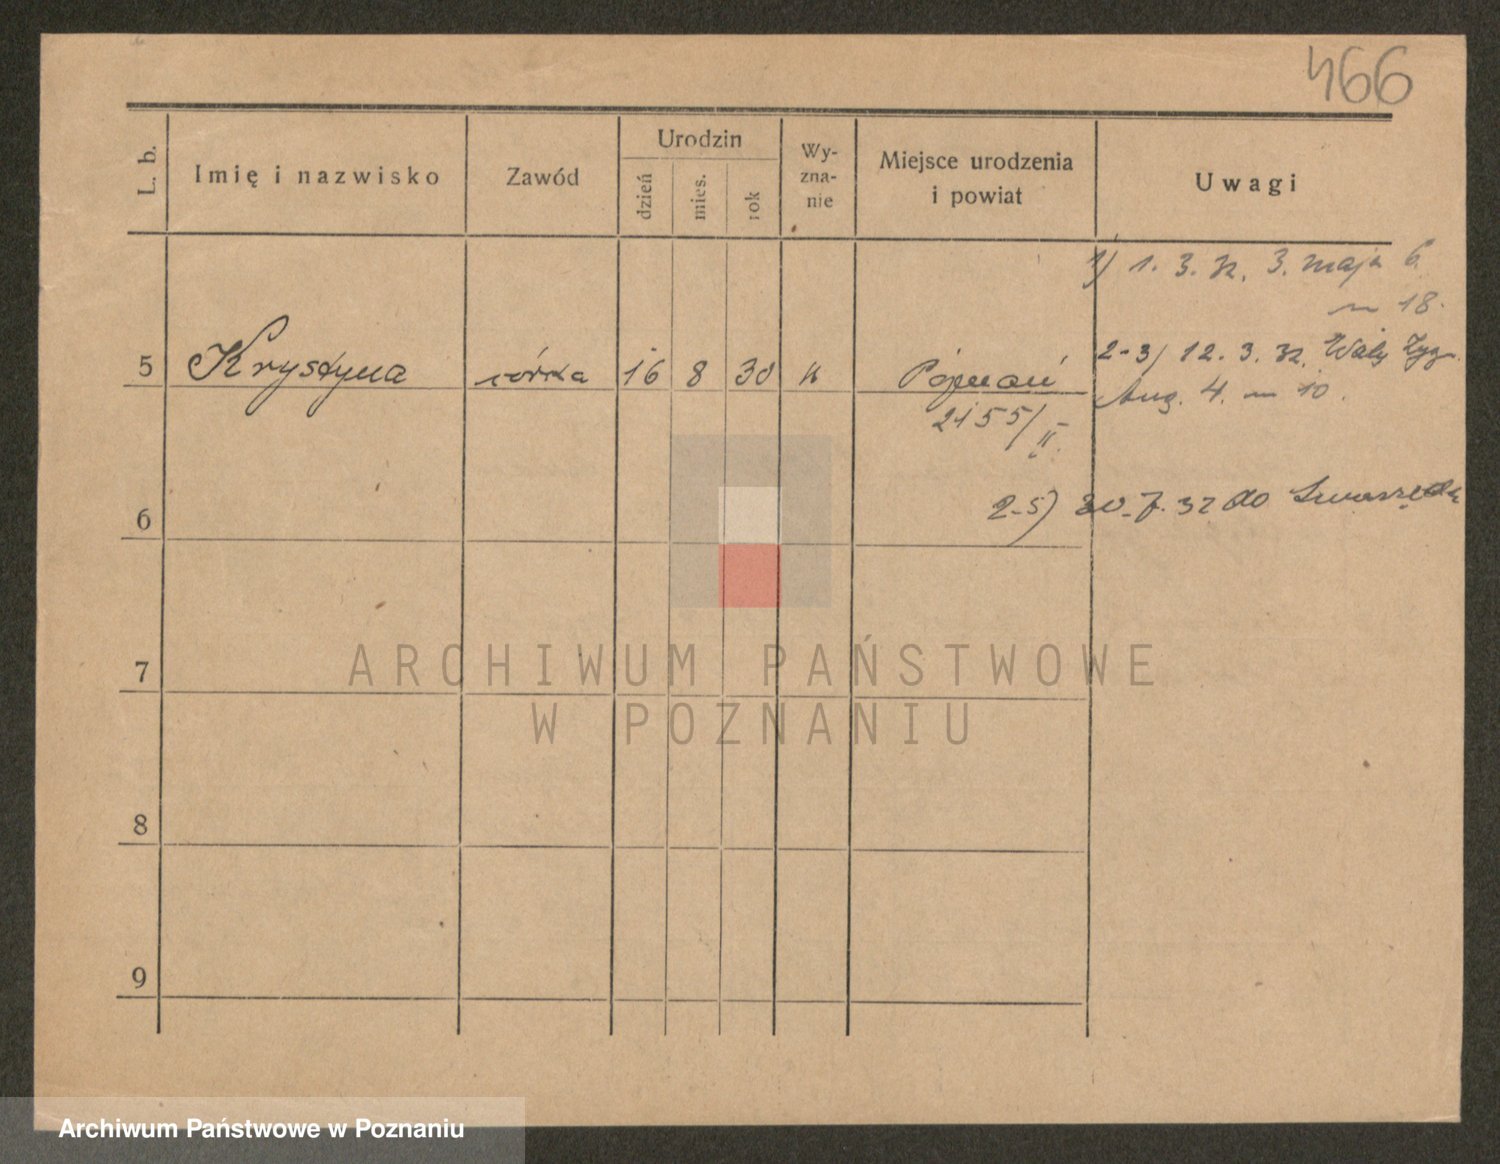 466
L. b.
Imię i nazwisko
Zawód
Urodzin
dzień
mies.
rok
Wy-
zna-
nie
Miejsce urodzenia
i powiat
Uwagi
1) 1. 3. 32. 3. maja 6.
m 18.
5 Krystyna córka 16 8 30 k Poznań
2155/II.
2-3) 12. 3. 32. Wały Zyg.
Aug. 4. m 10.
6
2-5) 30. 7. 32 do Swarzędz
7
8
9
ARCHIWUM PAŃSTWOWE
W POZNANIU
Archiwum Państwowe w Poznaniu